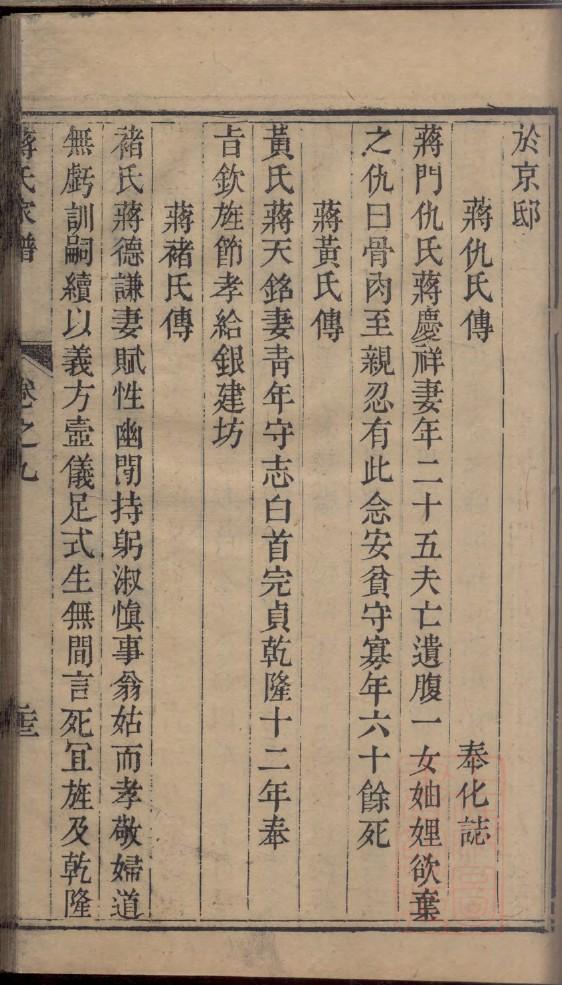 於京邸
蔣仇氏傳　奉化誌
蔣門仇氏蔣慶祥妻年二十五夫亡遺腹一女妯娌欲棄
之仇曰骨肉至親忍有此念安貧守寡年六十餘死
蔣黃氏傳
黃氏蔣天銘妻青年守志白首完貞乾隆十二年奉
旨欽旌節孝給銀建坊
蔣褚氏傳
褚氏蔣德謙妻賦性幽閒持躬淑慎事翁姑而孝敬婦道
無虧訓嗣續以義方壼儀足式生無間言死宜旌及乾隆
蔣氏家譜　卷之九　二十三